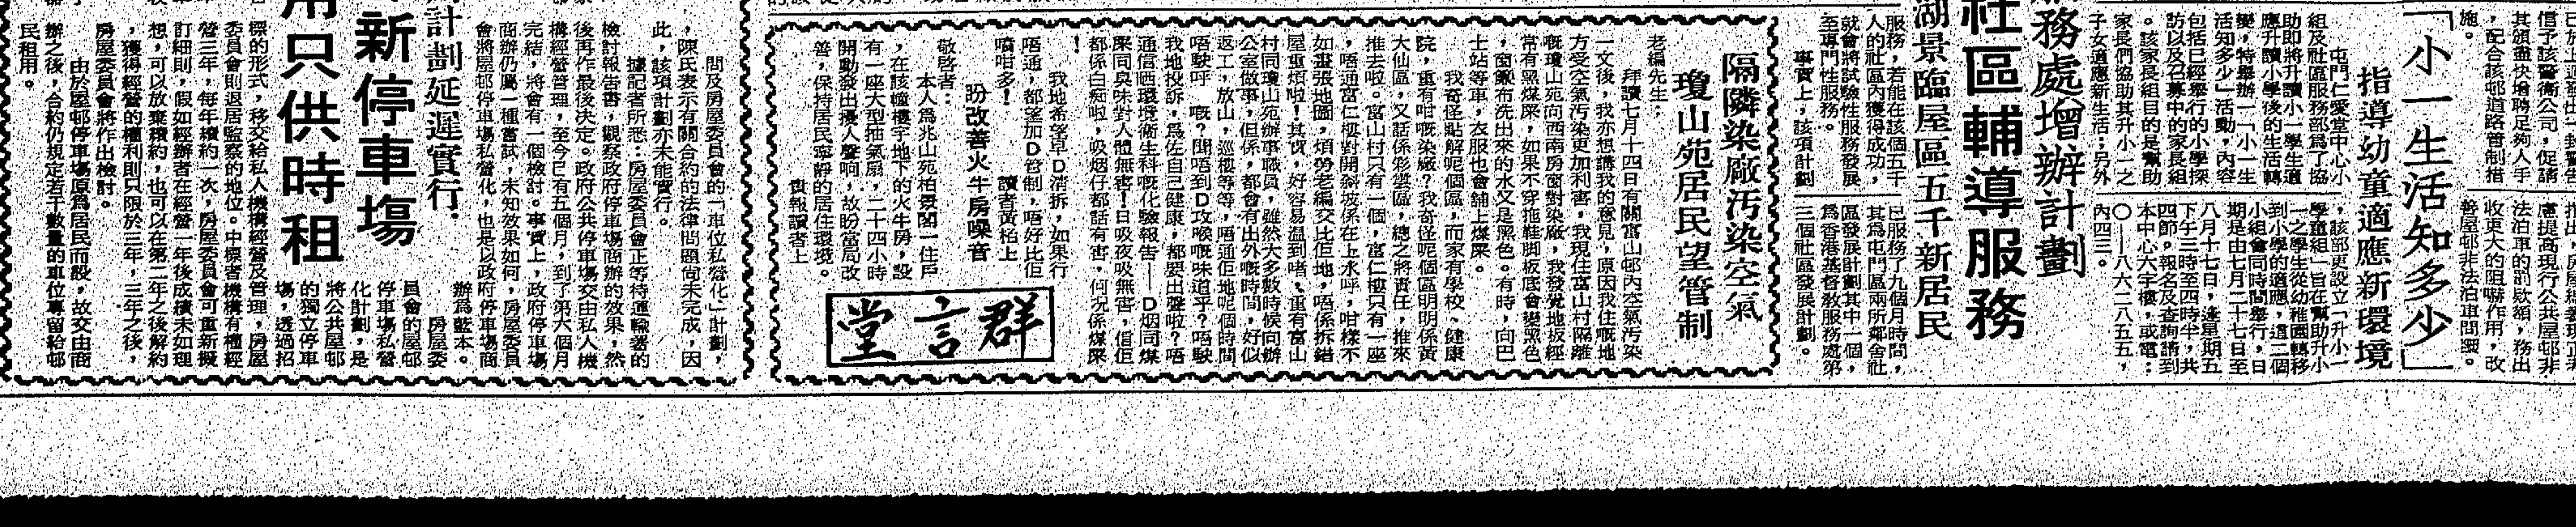 信予該警衛公司，促請
其須盡快增聘足夠人手
，配合該邨道路管制措
施。
收更大的阻嚇作用，改
善屋邨非法泊車問題。
「小一生活知多少」
指導幼童適應新環境
屯門仁愛堂中心小
組及社區服務部爲了協
助即將升讀小一學生適
應升讀小學後的生活轉
變，特舉辦一「小一生
活知多少」活動，內容
包括已經舉行的小學探
訪以及召募中的家長組
。該家長組目的是幫助
家長們協助其升小一之
子女適應新生活；另外
，該部更設立「升小一
學童組」旨在幫助升小
一之學生從幼稚園轉移
到小學的適應，這二個
小組會同時間舉行，日
期是由七月二十七日至
八月十七日，逢星期五
下午三時至四時半，共
四節。報名及查詢請到
本中心六字樓，或電：
〇——八六二八五五，
內四三。
務處增辦計劃
社區輔導服務
湖景臨屋區五千新居民
服務，若能在該個五千
人的社區內獲得成功，
就會將試驗性服務發展
至專門性服務。
事實上，該項計劃
已服務了九個月時間，
其爲屯門區兩所鄰舍社
區發展計劃其中一個，
爲香港基督敎服務處第
三個社區發展計劃。
隔隣染廠汚染空氣
瓊山苑居民望管制
老編先生：
拜讀七月十四日有關富山邨內空氣汚染
一文後，我亦想講我的意見，原因我住嘅地
方受空氣汚染更加利害，我現住富山村隔離
嘅瓊山苑向西南房窗對染廠，我發覺地板經
常有黑煤屎，如果不穿拖鞋脚板底會變黑色
，窗嚫布洗出來的水又是黑色。有時，向巴
士站等車，衣服也會舖上煤屎。
我奇怪點解呢個區，而家有學校、健康
院，重有咁嘅染廠？我奇怪呢個區明明係黃
大仙區，又話係彩雲區，總之將責任，推來
推去啦。富山村只有一個，富仁樓只有一座
，唔通富仁樓對開斜坡係在上水呼，咁樣不
如畫張地圖，煩勞老編交比佢地，唔係拆錯
屋重煩啦！其實，好容易搵到啫，重有富山
村同瓊山苑辦事職員，雖然大多數時候向辦
公室做事，但係，都會有出外嘅時間，好似
返工，放山，巡樓等等，唔通佢地呢個時間
唔駛呼嘅？聞唔到D攻喉嘅味道平？唔駛
我地投訴，爲佐自己健康，都要出聲啦？唔
通信晒環境衛生科嘅化驗報告——D烟同煤
屎同臭味對人體無害！日吸夜吸無害，信佢
都係白痴啦，吸烟仔都話有害，何况係煤屎
！
我地希望早D清拆，如果冇
唔通，都望加D管制，唔好比佢
噴咁多！
讀者黃栢上
盼改善火牛房噪音
敬啓者：
本人爲兆山苑柏景閣一住戶
，在該幢樓宇地下的火牛房，設
有一座大型抽氣扇，二十四小時
開動發出擾人聲响，故盼當局改
善，保持居民寧靜的居住環境。
貴報讀者上
群言堂
問及房屋委員會的「車位私營化」計劃，
，陳氏表示有關合約的法律問題尚未完成，因
此，該項計劃亦未能實行。
據記者所悉：房屋委員會正等待運輸署的
檢討報吿書，觀察政府停車場商辦的效果，然
後再作最後決定。政府公共停車場交由私人機
構經營管理，至今已有五個月，到了第六個月
完結，將會有一個檢討。事實上，政府停車場
商辦仍屬一種嘗試，未知效果如何，房屋委員
會將屋邨停車場私營化，也是以政府停車場商
辦爲藍本。
計劃延遲實行．
新停車場
用只供時租
房屋委
員會的屋邨
停車場私營
化計劃，是
將公共屋邨
的獨立停車
場，透過招
標的形式，移交給私人機構經營及管理，房屋
委員會則退居監察的地位。中標者機構有權經
營三年，每年續約一次，房屋委員會可重新擬
訂細則，假如經辦者在經營一年後成績未如理
想，可以放棄續約，也可以在第二年之後解約
，獲得經營的權利則只限於三年，三年之後，
房屋委員會將作出檢討。
由於屋邨停車場原爲居民而設，故交由商
辦之後，合約仍規定若干數量的車位專留給邨
民租用。